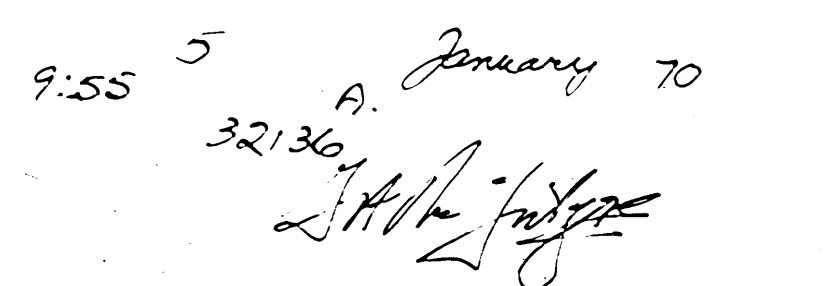 9:55 5 January 70
A.
32136